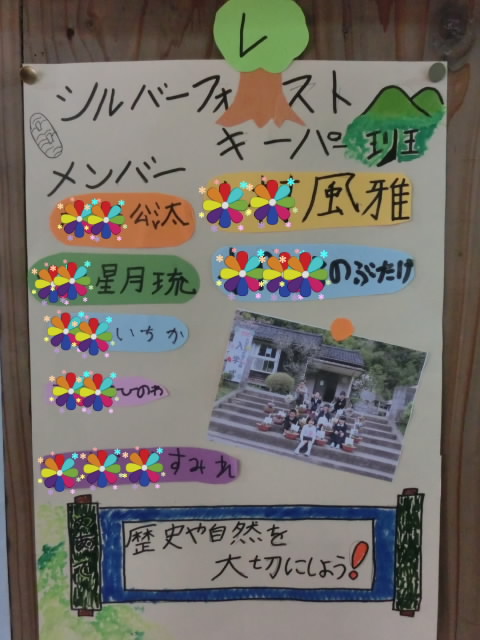 シルバーフォレスト
キーパー班
メンバー
公汰
風雅
星月琉
のぶたけ
いちか
ひのわ
すみれ
歴史や自然を
大切にしよう!